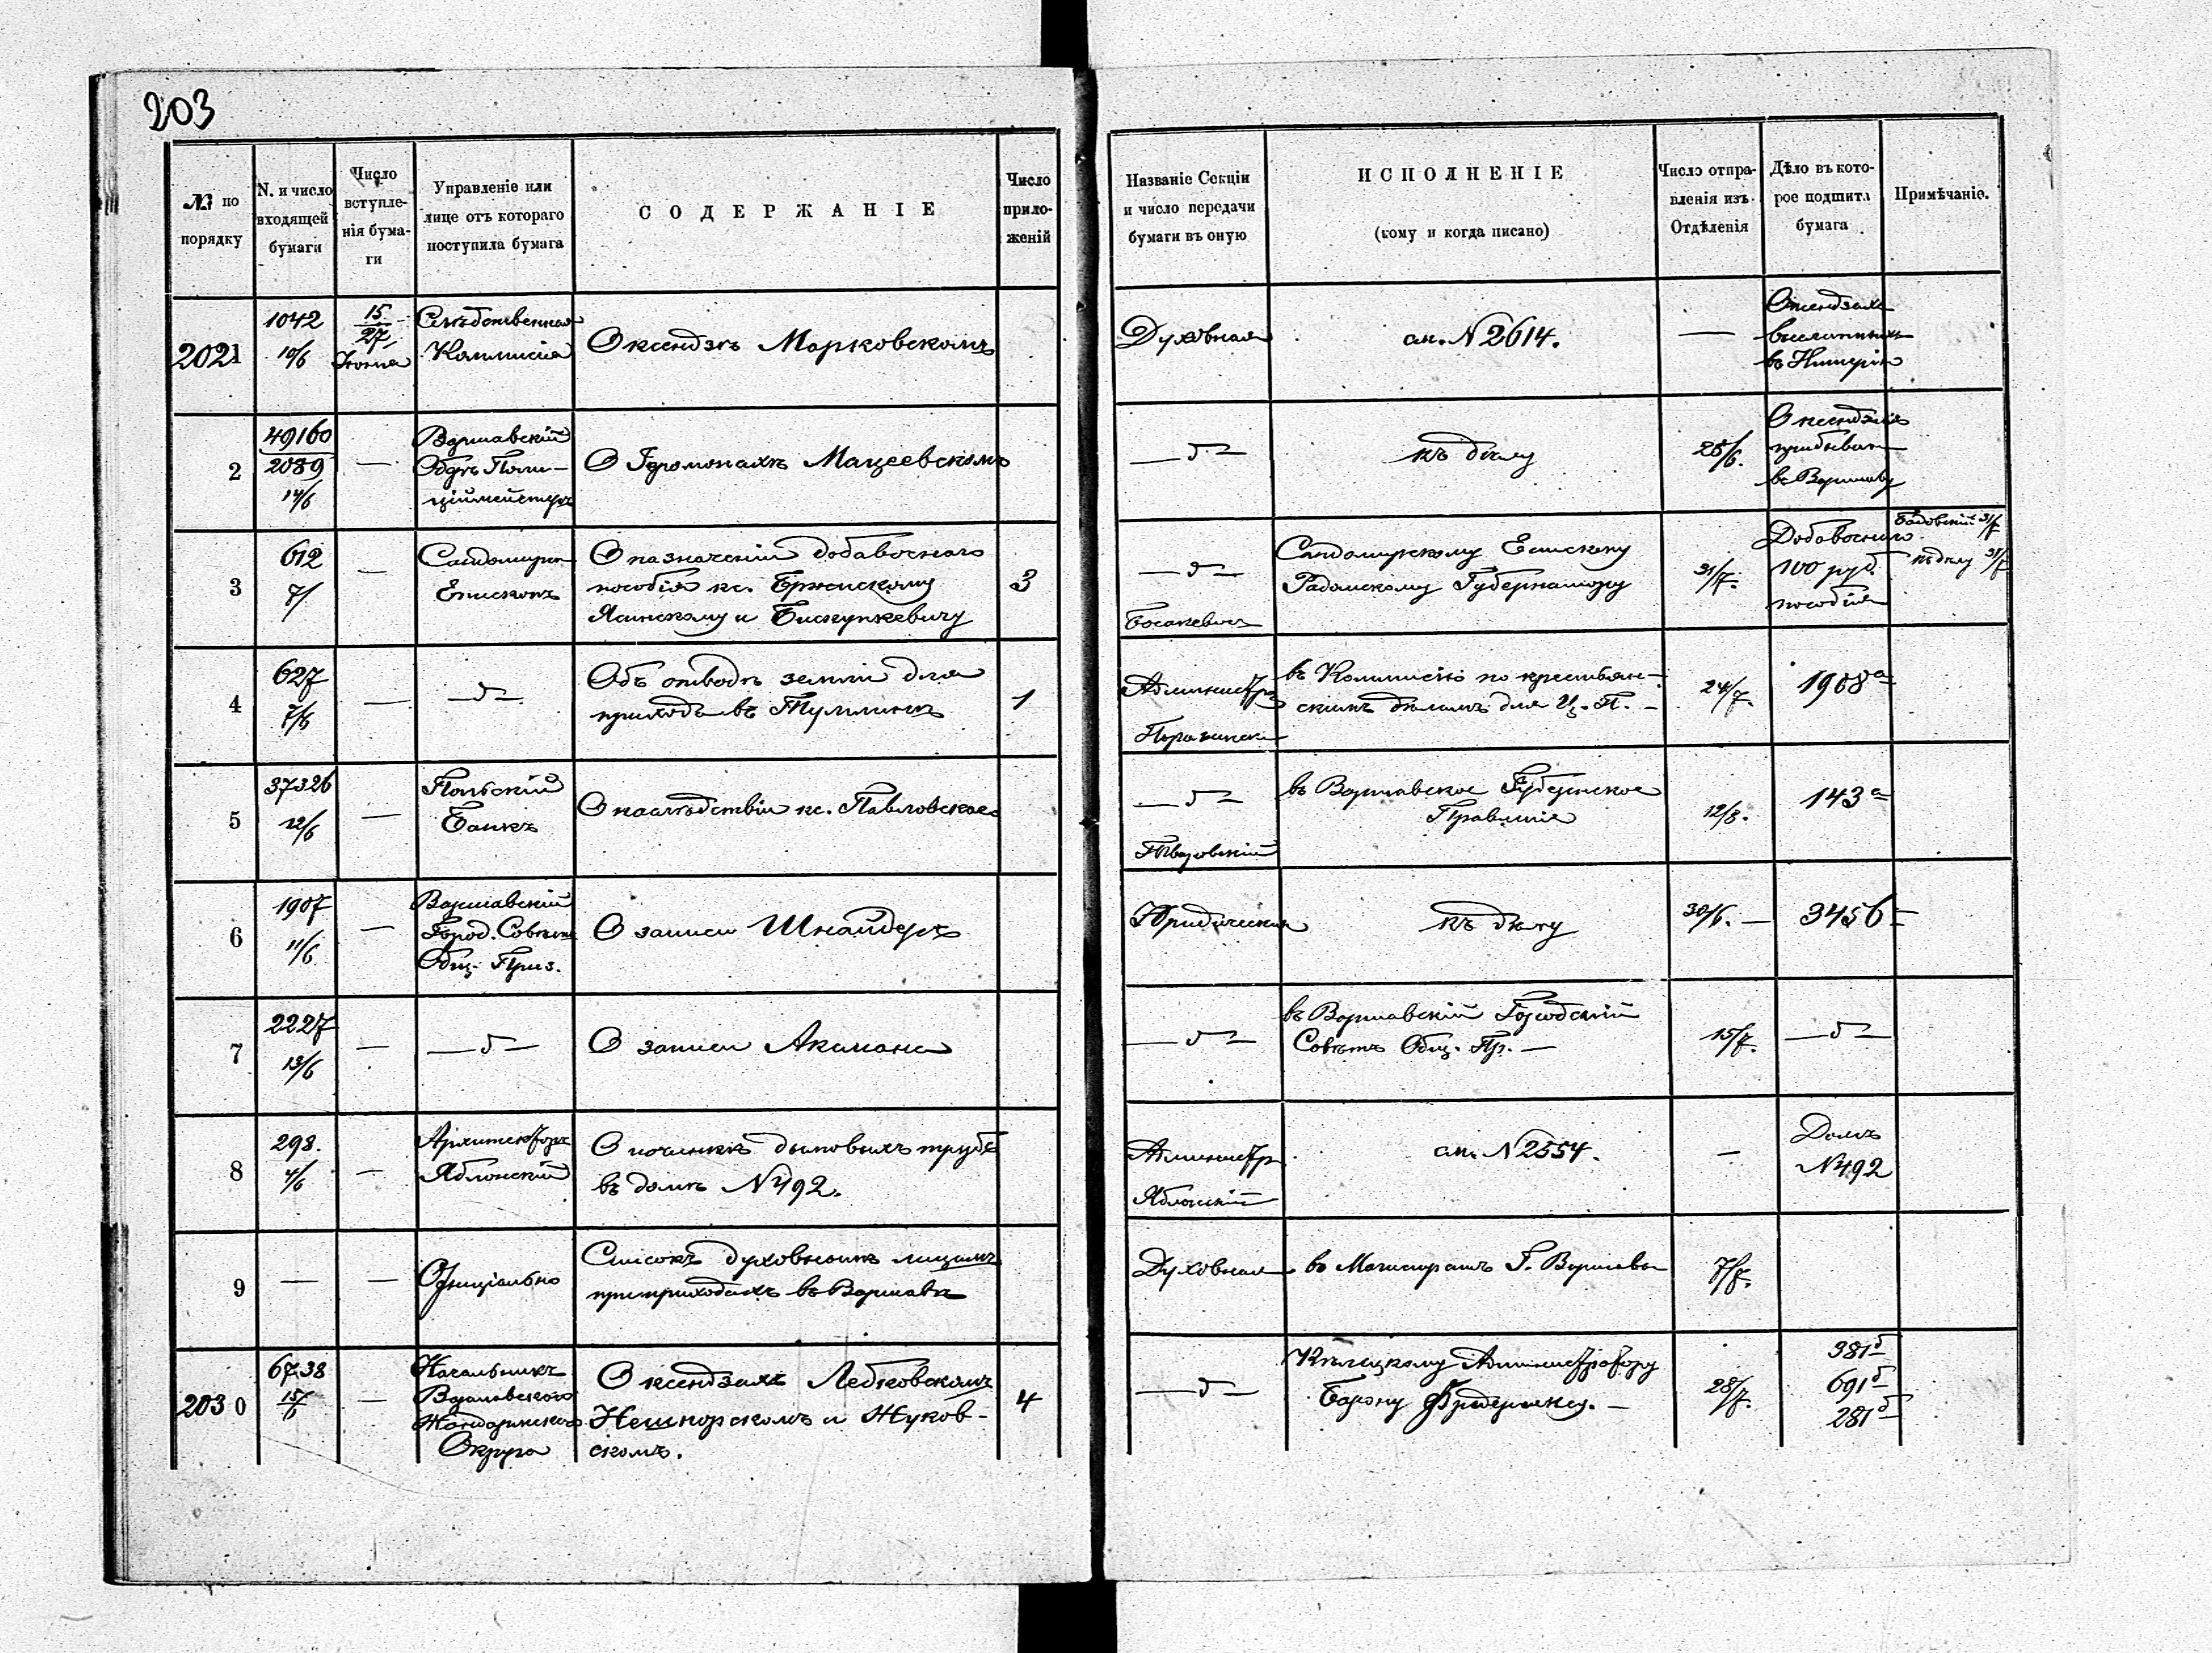 203
№ по порядку
N. и число входящей бумаги
Число вступленія бумаги
Управленіе или лице отъ котораго поступила бумага
СОДЕРЖАНІЕ
Число приложеній
Названіе Секціи и число передачи бумаги въ оную
ИСПОЛНЕНІЕ
(кому и когда писано)
Число отправленія изъ Отдѣленія
Дѣло въ которое подшита бумага
Примѣчаніе.
2021
1042
10/6
15/27
Іюня
Слѣдственная
Коммисія
О ксендзѣ Марковскомъ
Духовная
см. N 2614.
—
О ксендзахъ
высланныхъ
въ Имперію
2
49160
2089
14/6
—
Варшавскій
Оберъ Поли-
ціймейстеръ
О Іеромонахѣ Мацеевскомъ
— д —
къ дѣлу
25/6.
О ксендзахъ
прибывш
въ Варшаву
3
612
7/
—
Сандомирск
Епископъ
О назначеніи добавочнаго
пособія кс.
Ясинскому и Бискупкевичу
3
— д —
Сандомирскому Епископу
Радомскому Губернатору
31/7.
Добавочнаго
100 руб.
пособія
31/7
къ дѣлу 31/7
4
627
7/6
—
— д —
Объ отводѣ земли для
прихода въ Тумлинѣ
1
Администр
въ Коммисію по крестьян-
скимъ дѣламъ для Ц. П. —
24/7.
1908а
5
37326
12/6
—
Польскій
Банкъ
О наслѣдствіи кс. Павловскаго
— д —
въ Варшавское Губернское
Правленіе
12/8.
143а
6
1907
11/6
—
Варшавскій
Город. Совѣтъ
Общ. Приз.
О записи Шнайдеръ
Юридическая
къ дѣлу
30/6. —
3456
7
2227
13/6
—
— д —
О записи Акимана
— д —
въ Варшавскій Городской
Совѣтъ Общ. Пр. —
15/7.
— д —
8
298.
4/6
—
Архитекторъ
Яблонскій
О починкѣ дымовыхъ трубъ
въ домѣ N 492.
Администр.
Яблонскій
см. N 2554.
—
Домъ
N 492
9
—
—
Офиціально
Списокъ духовнымъ лицамъ
при приходахъ въ Варшавѣ
Духовная
въ Магистратъ Г. Варшавы
7/7.
2030
6738
15/6
—
Начальникъ
Варшавскаго
Жандармскаго
Округа
О ксендзахъ Ледковскомъ
и Жуков-
скомъ.
4
— д —
Кѣлецкому Администратору
Барону Фридериксу. —
28/7.
381б
691б
281б